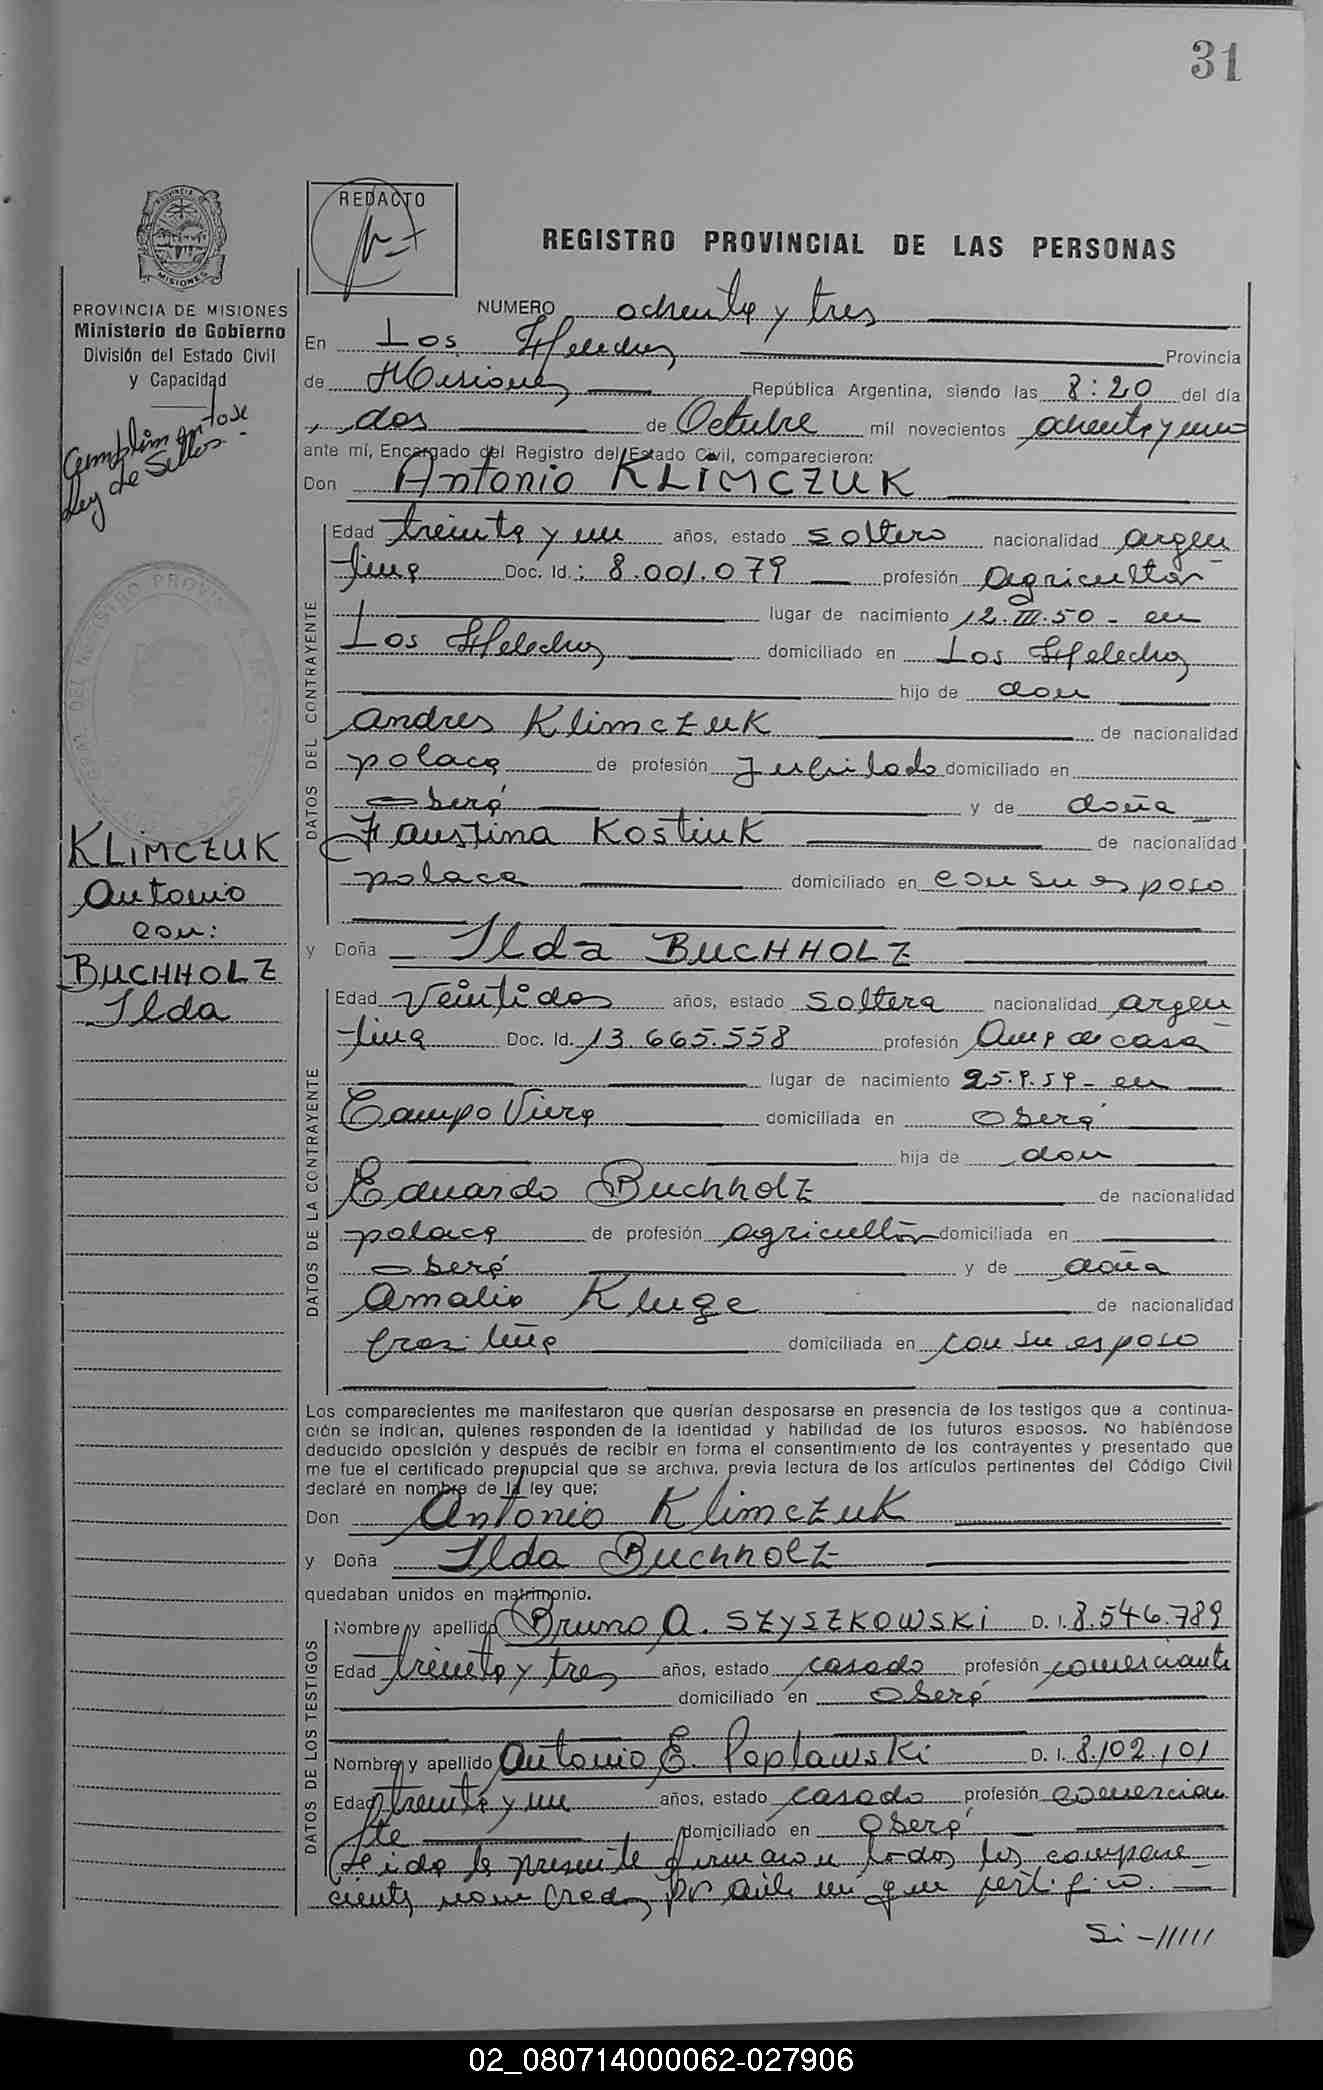 31
REDACTO
REGISTRO PROVINCIAL DE LAS PERSONAS
PROVINCIA DE MISIONES
Ministerio de Gobierno
División del Estado Civil
y Capacidad
Cumplimentose
Ley de Sellos.-
KLIMCZUK
Antonio
con:
BUCHHOLZ
Ilda
NUMERO ochenta y tres
En Los Helechos Provincia
de Misiones República Argentina, siendo las 8:20 del día
dos de Octubre mil novecientos ochenta y uno
ante mí, Encargado del Registro del Estado Civil, comparecieron:
Don Antonio KLIMCZUK
DATOS DEL CONTRAYENTE
Edad treinta y un años, estado soltero nacionalidad argen
tina Doc. Id.: 8.001.079 profesión agricultor
lugar de nacimiento 12.III.50 - en
Los Helechos domiciliado en Los Helechos
hijo de don
Andres Klimczuk de nacionalidad
polaca de profesión Jubilado domiciliado en
Oberá y de doña
Faustina Kostiuk de nacionalidad
polaca domiciliado en con su esposo
y Doña Ilda BUCHHOLZ
DATOS DE LA CONTRAYENTE
Edad Veintidos años, estado soltera nacionalidad argen
tina Doc. Id. 13.665.558 profesión Ama de casa
lugar de nacimiento 25.9.59 - en
Campo Viera domiciliada en Oberá
hija de don
Eduardo Buchholz de nacionalidad
polaca de profesión agricultor domiciliada en
Oberá y de doña
Amalia Kluge de nacionalidad
brasileña domiciliada en con su esposo
Los comparecientes me manifestaron que querían desposarse en presencia de los testigos que a continua-
ción se indican, quienes responden de la identidad y habilidad de los futuros esposos. No habiéndose
deducido oposición y después de recibir en forma el consentimiento de los contrayentes y presentado que
me fue el certificado prenupcial que se archiva, previa lectura de los artículos pertinentes del Código Civil
declaré en nombre de la ley que:
Don Antonio Klimczuk
y Doña Ilda Buchholz
quedaban unidos en matrimonio.
DATOS DE LOS TESTIGOS
Nombre y apellido Bruno A. SZYSZKOWSKI D. I. 8.546.789
Edad treinta y tres años, estado casado profesión comerciante
domiciliado en Oberá
Nombre y apellido Antonio E. Poplawski D. I. 8.102.101
Edad treinta y un años, estado casado profesión comercian
te domiciliado en Oberá
Leida la presente firmaron todos los compare
cientes nombrados por ante mi que certifico.
Si -//////
02_080714000062-027906